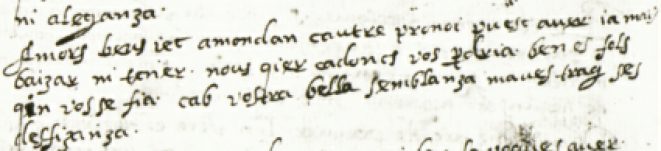 ni alegranza.
Amors beus iet amondan cautre pronoi puesc auer ia mai
baizar ni tener. nous qier cadoncs vos perdria. ben es fols
qin vos se fia cab vostra bella semblanza maues trag ses
deffizanza.
auer